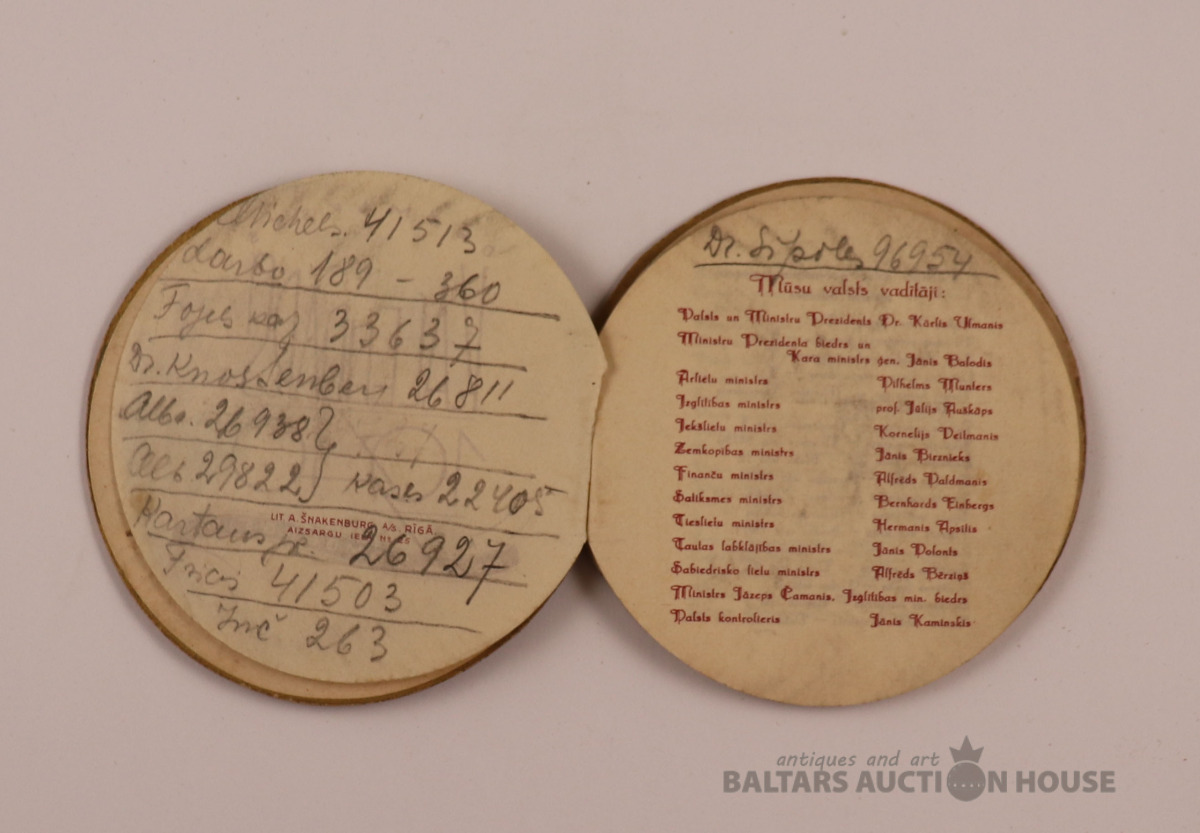 Michels. 41513
Darbo 189 - 360
33637
Dr. 26811
Alb. 26938
Alb 29822 kases 22405
LIT. A. ŠNAKENBURG A/S. RĪGĀ
AIZSARGU IELĀ
26927
41503
263
Dr. Sīpols 96954
Mūsu valsts vadītāji:
Valsts un Ministru Prezidents Dr. Kārlis Ulmanis
Ministru Prezidenta biedrs un
Kara ministrs ģen. Jānis Balodis
Ārlietu ministrs Vilhelms Munters
Izglītības ministrs prof. Jūlijs Auškāps
Iekšlietu ministrs Kornelijs Veitmanis
Zemkopības ministrs Jānis Birznieks
Finanču ministrs Alfrēds Valdmanis
Satiksmes ministrs Bernhards Einbergs
Tieslietu ministrs Hermanis Apsītis
Tautas labklājības ministrs Jānis Volonts
Sabiedrisko lietu ministrs Alfrēds Bērziņš
Ministrs Jāzeps Camanis, Izglītības min. biedrs
Valsts kontrolieris Jānis Kaminskis
antiques and art
BALTARS AUCTION HOUSE